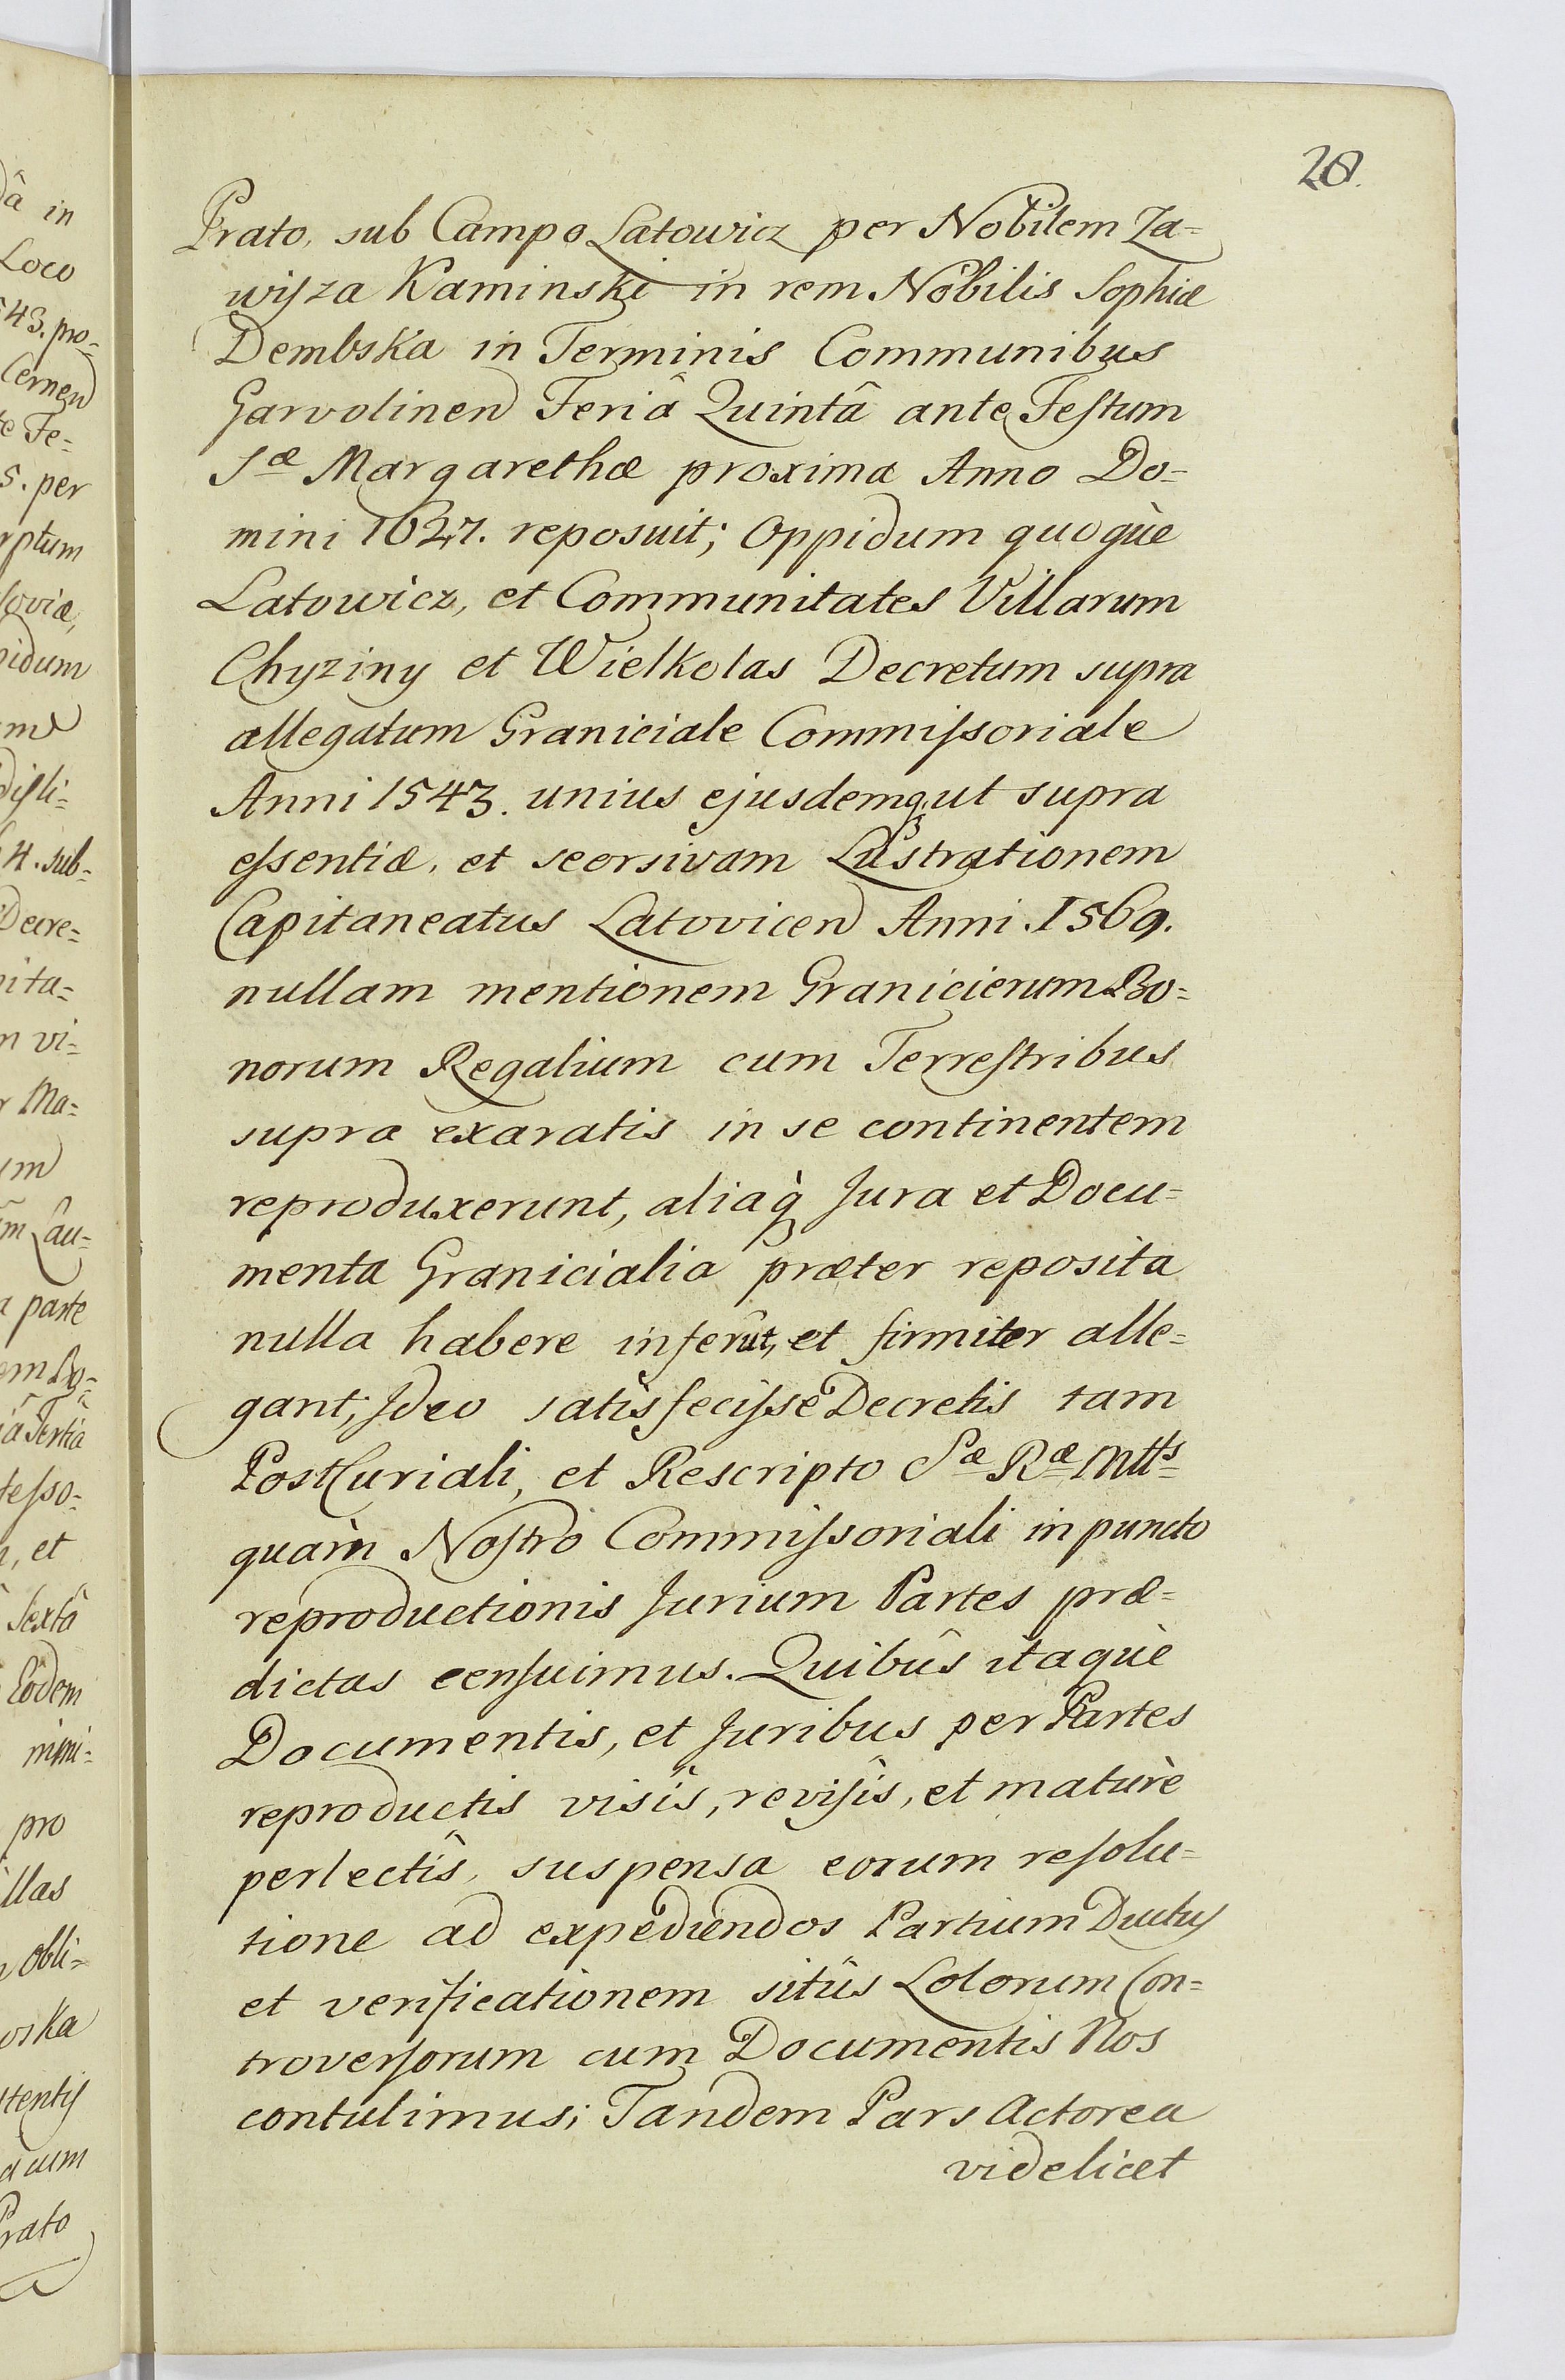 28.
Prato, sub Campo Latowicz per Nobilem Za=
wiſza Kaminski in rem Nobilis Sophiæ
Dembska in Terminis Communibus
Garvolinen Feriâ Quintâ ante Feſtum
Sæ Margarethæ proxima Anno Do=
mini 1627. reposuit; Oppidum quoquè
Latowicz, et Communitates Villarum
Chyziny et Wielkolas Decretum supra
allegatum Graniciale Commiſsoriale
Anni 1543. unius ejusdemq; ut supra
eſsentiæ, et seorsivam Lustrationem
Capitaneatus Latovicen Anni 1569.
nullam mentionem Granicierum Bo=
norum Regalium cum Terreſtribus
supra exaratis in se continentem
reproduxerunt, aliaq̀ Jura et Docu=
menta Granicialia præter reposita
nulla habere inferût, et firmiter alle=
gant; Ideo satisfeciſse Decretis tam
PostCuriali, et Rescripto Sæ Ræ Mtts
quàm Noſtro Commiſsoriali in puncto
reproductionis Jurium Partes præ=
dictas cenſuimus. Quibûs itaquè
Documentis, et Juribus per Partes
reproductis visîs, reviſîs, et maturè
perlectîs, suspensa eorum reſolu=
tione ad expediendos Partium Ductus
et verificationem sitûs Locorum Con=
troverſorum cum Documentis Nos
contulimus; Tandem Pars Actorea
videlicet
â in
Loco
pro=
Cernen
te Fe=
5. per
ptum
oviæ,
pidum
4. sub=
Decre=
nita=
m vi=
r Ma=
um
a parte
â Tertia
n, et
Sextâ
Eôdem
mini=
pro
llas
obli=
Prato